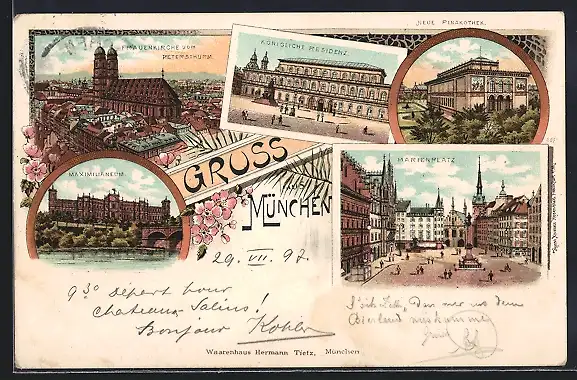 FRAUENKIRCHE VOM
PETERSTHURM.
KÖNIGLICHE RESIDENZ
NEUE PINAKOTHEK.
MAXIMILIANEUM
GRUSS
AUS
MÜNCHEN
MARIENPLATZ
29. VII. 97.
9 30 Départ pour
Chateau-Salins!
Bonjour Kohler
Waarenhaus Hermann Tietz, München